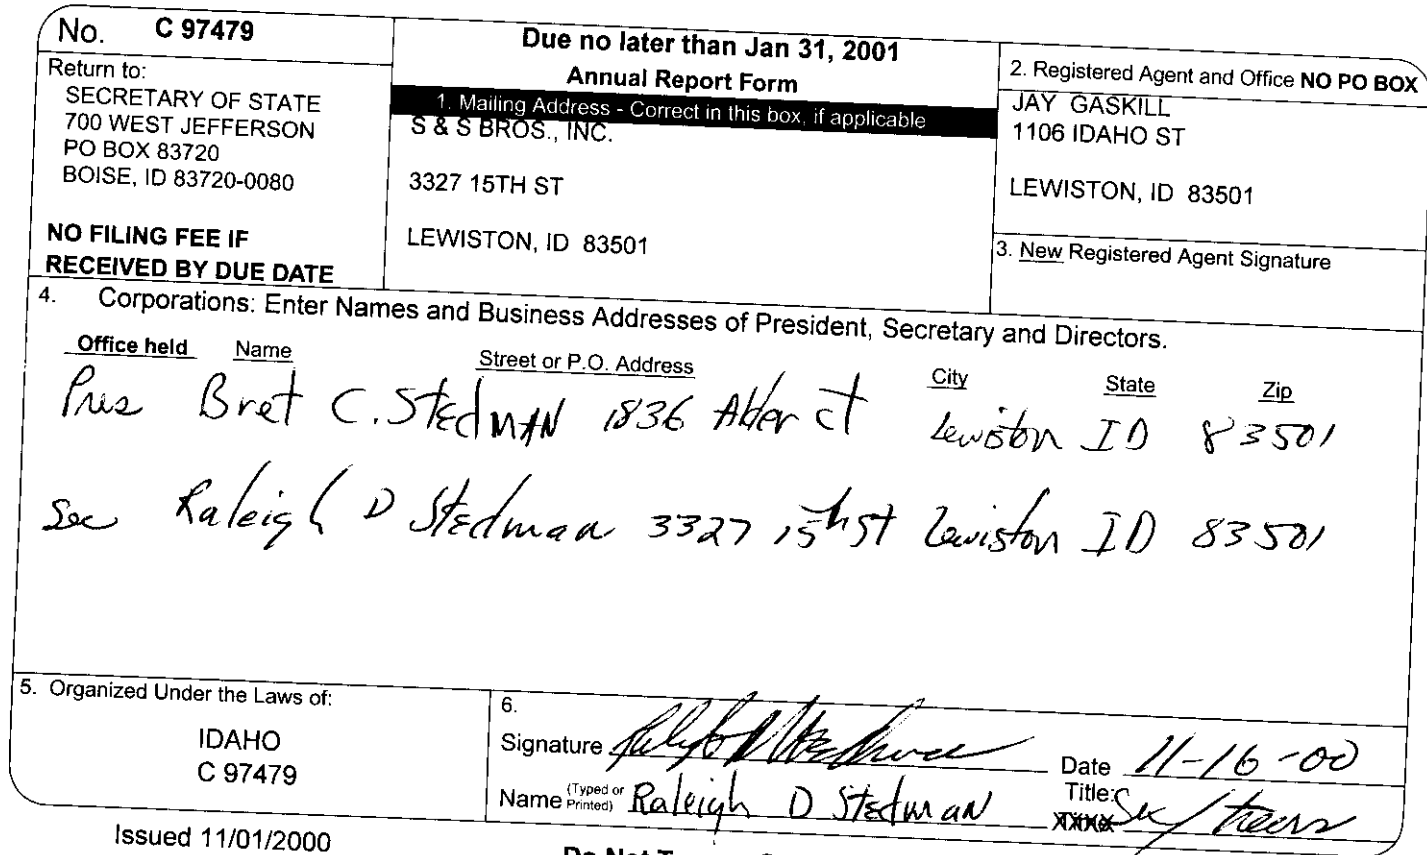 No. C 97479
Return to:
SECRETARY OF STATE
700 WEST JEFFERSON
PO BOX 83720
BOISE, ID 83720-0080
NO FILING FEE IF
RECEIVED BY DUE DATE
Due no later than Jan 31, 2001
Annual Report Form
1. Mailing Address - Correct in this box, if applicable
S & S BROS., INC.
3327 15TH ST
LEWISTON, ID 83501
2. Registered Agent and Office NO PO BOX
JAY GASKILL
1106 IDAHO ST
LEWISTON, ID 83501
3. New Registered Agent Signature
4. Corporations: Enter Names and Business Addresses of President, Secretary and Directors.
Office held Name Street or P.O. Address City State Zip
Pres Bret C. Stedman 1836 Alder ct Lewiston ID 83501
Sec Raleigh D Stedman 3327 15th st Lewiston ID 83501
5. Organized Under the Laws of:
IDAHO
C 97479
6.
Signature Date 11-16-00
Name (Typed or Printed) Raleigh D Stedman Title: Sec/treas
Issued 11/01/2000
Do Not